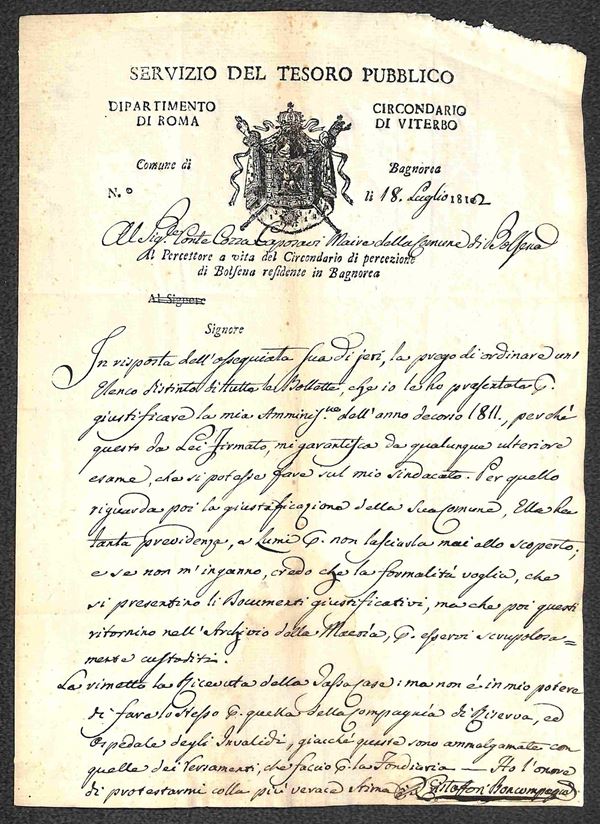 SERVIZIO DEL TESORO PUBBLICO
DIPARTIMENTO DI ROMA
CIRCONDARIO DI VITERBO
Comune di Bagnorea
N.º li 18. Luglio 1812
Al Sig.r Conte Cozza Caposavi Maire della Comune di Bolsena
Il Percettore a vita del Circondario di percezione
di Bolsena residente in Bagnorea
Al Signore
Signore
In risposta dell'ossequiata sua di jeri, la prego di ordinare un'
Elenco distinto di tutte le Bollette, che io le ho presentata p.
giustificare la mia Amminis.ne dell'anno decorso 1811., perché
questo da Lei firmato, mi garantisca da qualunque ulteriore
esame, che si potesse fare sul mio sindacato. Per quello
riguarda poi la giustificazione della sua Comune, Ella ha
tanta previdenza, e lumi p. non lasciarla mai allo scoperto;
e se non m'inganno, credo che la formalità voglia, che
si presentino li Documenti giustificativi, ma che poi questi
ritornino nell'Archivio della Maeria, p. esservi scrupolosa=
mente custoditi.
La rimetto la Ricevuta della Tassa case: ma non é in mio potere
di fare lo stesso p. quella della Compagnia di Riserva, ed
Ospedale degli Invalidi, giacché queste sono ammalgamate con
quelle dei Versamenti, che faccio p. la Fondiaria — Ho l'onore
di protestarmi colla più verace stima